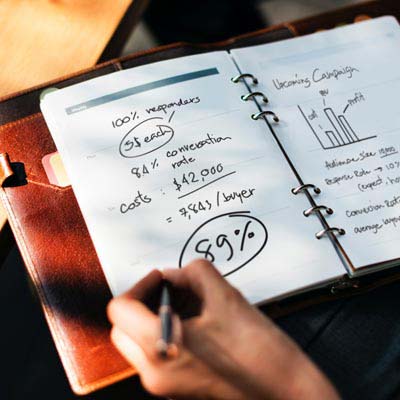 100% responders
5$ each
84% conversation
rate
costs : $42,000
= 7843/buyer
89%
Upcoming Campaign
profit
Audience size 10,000
Response Rate → 10%
Conversion Rate
average